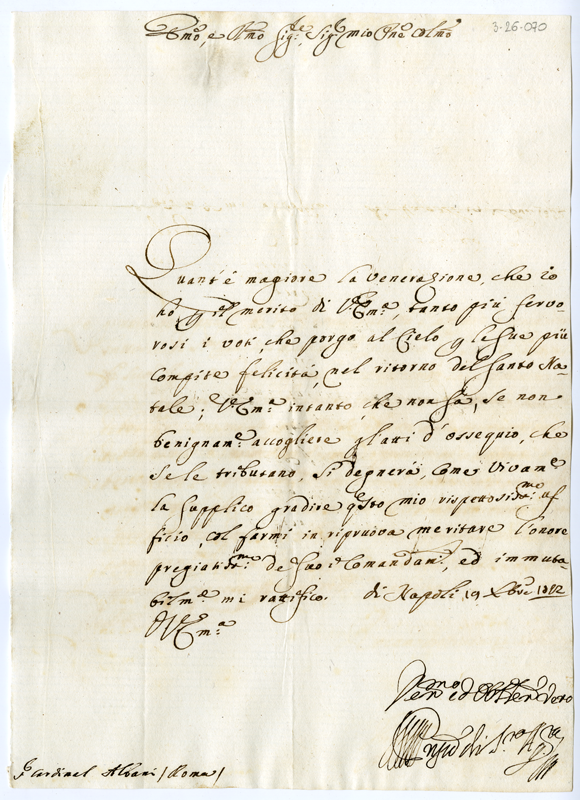 Emo, e Rmo Sig.re Sig.r mio Pne Colmo
3-26-070
Quant'è magiore la venerazione, che io
hò p il merito di V. Em.a, tanto più fervo-
rosi i voti che porgo al Cielo p le sue più
compite felicità, nel ritorno del Santo Na-
tale; V. Em.a intanto, che non sà, se non
benignam.e accogliere gl'atti d'ossequio, che
se le tributano, si degnerà, come vivam.e
la supplico gradire q.sto mio rispettosis.mo uf
ficio, col farmi in ripruova meritare l'onore
pregiatis.mo de suoi Comandam.i, ed immuta
bilm.e mi ratifico. di Napoli 19 Xbre
D V. Em.a
ed
S.r Cardinal Albani / Roma /